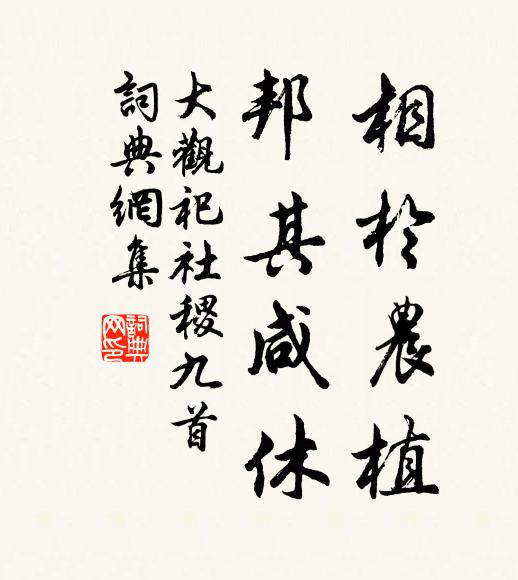 相於農植
邦其咸休
大觀祀社稷九首
詞典網集
詞典
网印